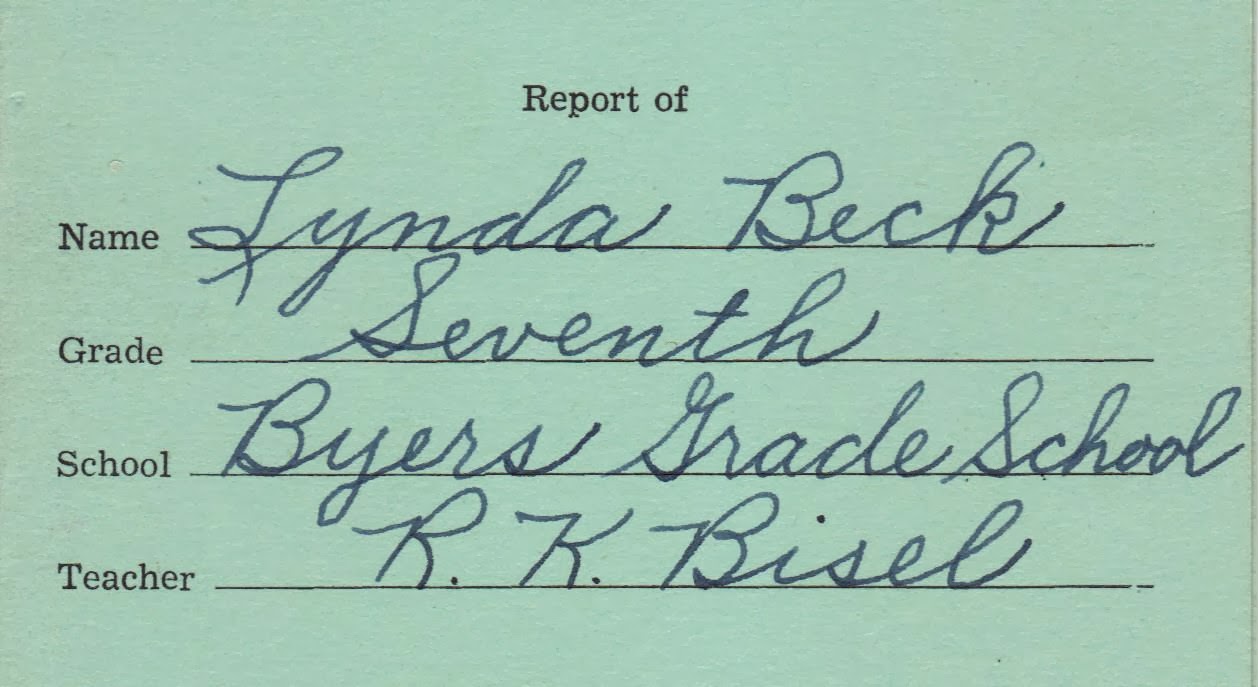 Report of
Name Lynda Beck
Grade Seventh
School Byers Grade School
Teacher R. K. Bisel